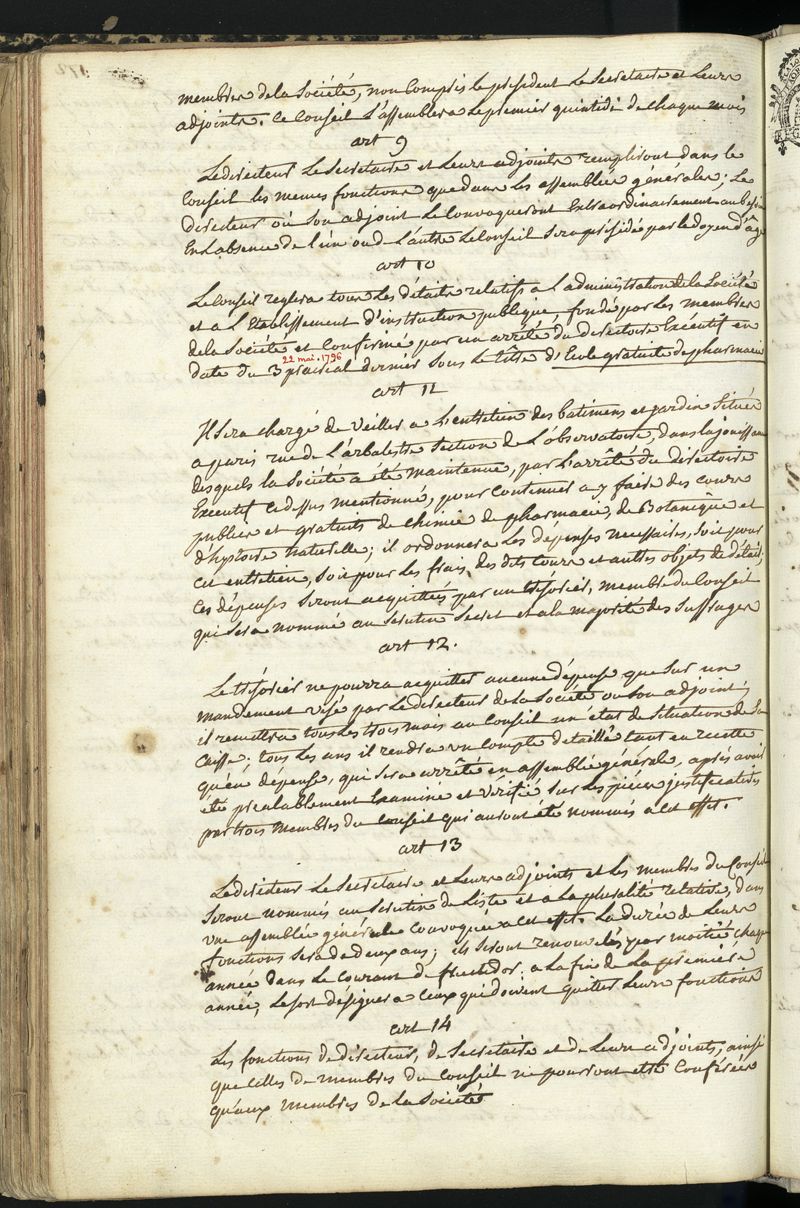 membres de la Société, non Compris le president Le Secretaire et Leurs
adjoints. Ce Conseil S'assemblera Le premier quintidi de chaque mois
art 9
Le directeur Le Secretaire et Leurs adjoints rempliront dans le
Conseil les memes fonctions que dans Les assemblées générales; Le
directeur où Son adjoint Le Convoqueront Extraordinairement au besoin
En L'absence de L'un ou de L'autre Le Conseil Sera présidé par le doyen d'âge
art 10
Le Conseil reglera tous Les détails relatifs a L'administration de la Société
et a L'Etablissement d'instruction publique, fondé par Les membres
de la Société et Confirmé par un arrêté du directoire Exécutif en
22 mai. 1796
date du 3 prairial dernier Sous Le titre d'Ecole gratuite de pharmacie
art 11
Il Sera chargé de Veiller a L'entretien des batimens et jardin Situés
a paris rue de L'arbalestre Section de L'observatoire, dans la jouissance
desquels la Société a été maintenue, par L'arrêté du directoire
Executif Cidessus mentionné, pour Continuer a y faire des cours
publics et gratuits de chimie de pharmacie, de Botanique et
d'hystoire naturelle; il ordonnera Les dépenses necessaires, Soit pour
cet entretien, Soit pour Les frais des dits Cours et autres objets de détail;
Ces dépenses Seront acquittées par un trésorier, membre du Conseil
qui Sera nommé au Scrutin Secret et a la majorité des Suffrages
art 12.
Le trésorier ne pourra acquitter aucune dépense que Sur un
mandement visé par Le directeur de la Société ou Son adjoint;
il remettra tous Les trois mois au Conseil un état de Situation de Sa
Caisse; tous Les ans il rendra un Compte detaillé tant en recette
qu'en dépense, qui Sera arrêté en assemblée générale, après avoir
été prealablement Examiné et verifié Sur Les pièces justificatives
par trois Membres du Conseil qui auront été nommés a cet effet.
art 13
Le directeur Le Secretaire et Leurs adjoints et Les membres du Conseil
Seront nommés au Scrutin de Liste et a La pluralité relative, dans
une assemblée générale Convoquée a cet effet. La durée de Leurs
fonctions Sera de deux ans; ils Seront renouvelés par moitié chaque
année dans Le Courant de fructidor; a La fin de La premiere
année, Le Sort désignera Ceux qui doivent quitter Leurs fonctions
art 14
Les fonctions de directeur, de Secretaire et de Leurs adjoints, ainsi
que Celles de membres du Conseil ne pourront etre Conférées
qu'aux membres de la Société